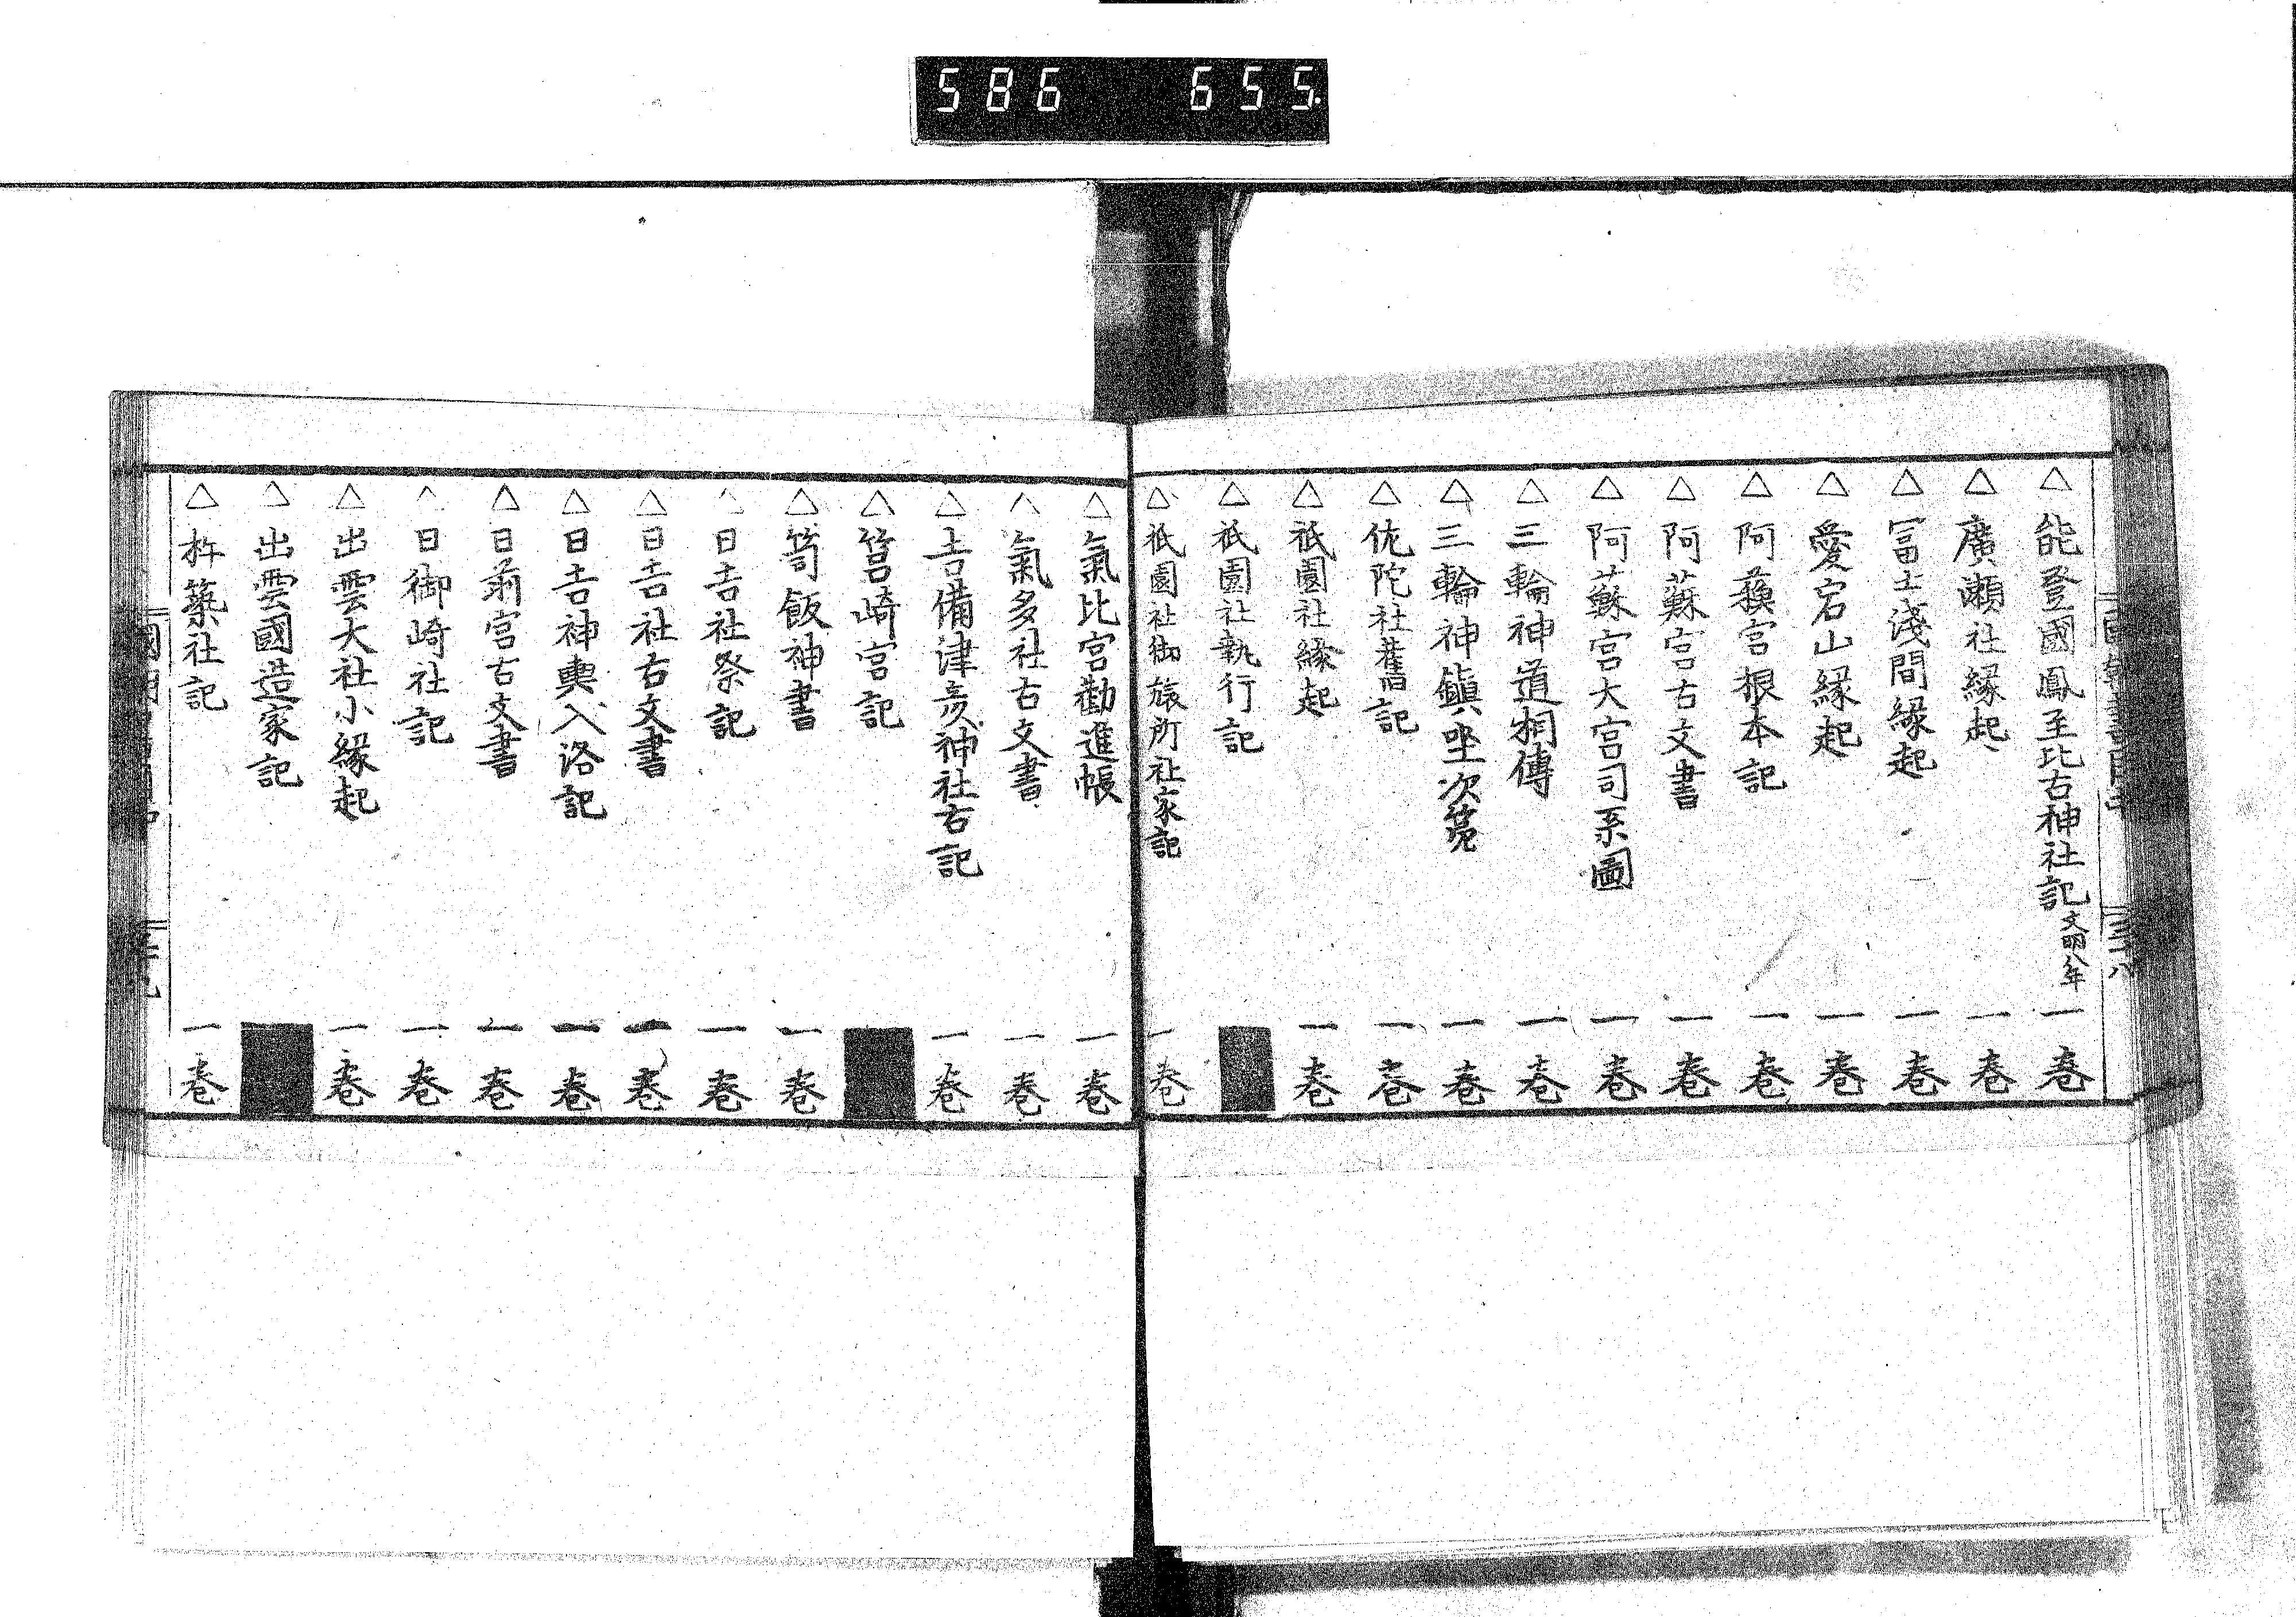 586 655.
△能登國鳳至比古神社記 文明八年 一巻
△廣瀬社縁起 一巻
△冨士淺間縁起 一巻
△愛宕山縁起 一巻
△阿蘇宮根本記 一巻
△阿蘇宮古文書 一巻
△阿蘇宮大宮司系圖 一巻
△三輪神道相傳 一巻
△三輪神鎭坐次第 一巻
△佐陀社舊記 一巻
△祇園社縁起 一巻
△祇園社執行記
△祇園社御旅所社家記 一巻
△氣比宮勸進帳 一巻
△氣多社古文書 一巻
△吉備津彦神社古記 一巻
△筥崎宮記
△笥飯神書 一巻
△日吉社祭記 一巻
△日吉社古文書 一巻
△日吉神輿入洛記 一巻
△日前宮古文書 一巻
△日御崎社記 一巻
△出雲大社小縁起 一巻
△出雲國造家記
△杵築社記 一巻